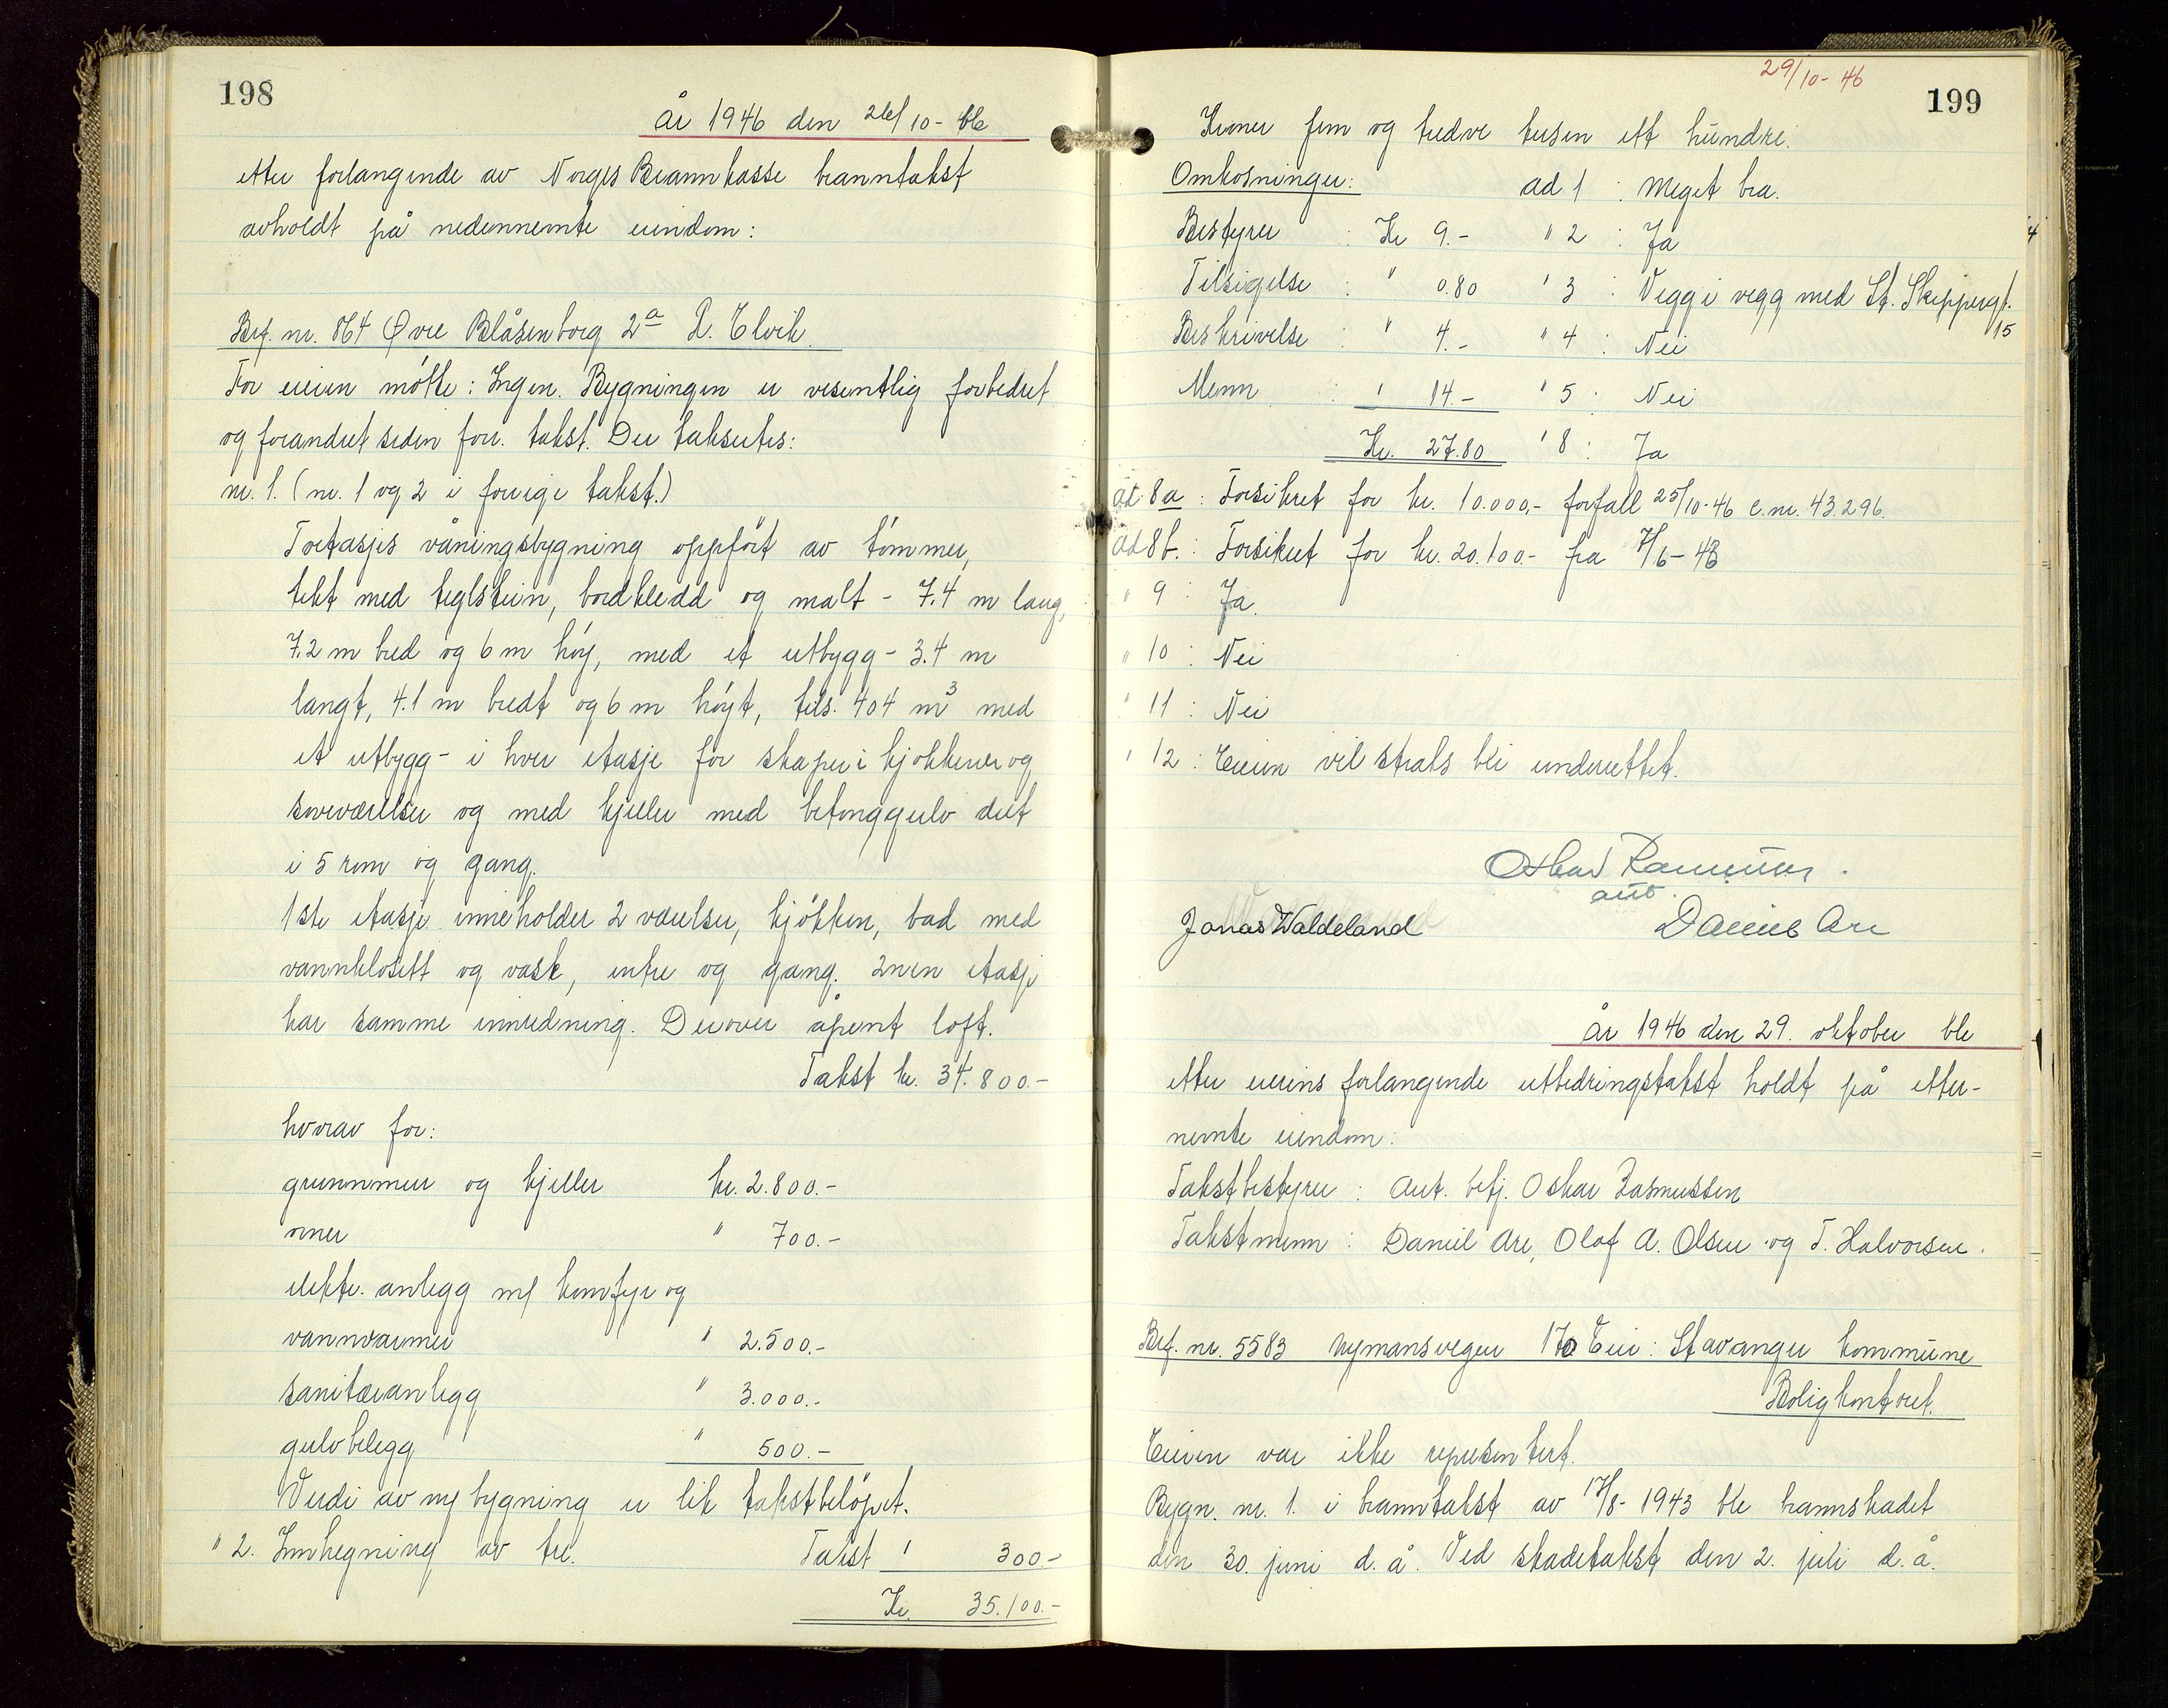 198
År 1946 den 26/10- ble
etter forlangende av Norges Brannkasse branntakst
avholdt på nedennevnte eiendom:
Brf. nr. 864 Øvre Blåsenborg 2a R. Elvik.
For eieren møtte: Ingen. Bygningen er vesentlig forbedret
og forandret siden forr. takst. Der takseres:
nr. 1. (nr. 1 og 2 i forrige takst.)
Toetasjes våningsbygning oppført av tømmer,
tekt med teglstein, bordkledd og malt - 7.4 m lang,
7.2 m bred og 6 m høy, med et utbygg - 3.4 m
langt, 4.1 m bredt og 6 m høyt, tils. 404 m³ med
et utbygg - i hver etasje for skaper i kjøkkener og
soveværelser og med kjeller med betonggulv delt
i 5 rom og gang.
1ste etasje inneholder 2 værelser, kjøkken, bad med
vannklosett og vask, entre og gang. 2nen etasje
har samme innredning. Derover åpent loft.
Takst kr. 34.800.-
hvorav for:
grunnmur og kjeller kr. 2.800.-
ovner " 700.-
elektr. anlegg m/ komfyr og
vannvarmer " 2.500.-
sanitæranlegg " 3.000.-
gulvbelegg " 500.-
Verdi av ny bygning er lik takstbeløpet.
" 2. Innhegning av tre. Takst " 300.-
Kr. 35.100.-
29/10- 46
199
Kroner fem og tredve tusen ett hundre.
Omkosninger: ad 1 : Meget bra.
Bestyrer : Kr 9.- " 2 : Ja
4
Tilsigelse : " 0.80 " 3 : Vegg i vegg med St. Skippergt.
15
Beskrivelse : " 4.- " 4 : Nei
Menn : " 14.- " 5 : Nei
Kr. 27.80 " 8 : Ja
ad 8a : Forsikret for kr. 10.000,- forfall 25/10-46 c.nr. 43.296.
ad 8b. : Forsikret for kr. 20.100.- fra 7/6-43
" 9 : Ja.
" 10 : Nei
" 11 : Nei
" 12 : Eieren vil straks bli underrettet.
Oskar Rasmussen.
aut.
Jonas Waldeland Daniel Are
År 1946 den 29. oktober ble
etter eierens forlangende utbedringstakst holdt på etter-
nevnte eiendom:
Takstbestyrer : Aut. betj. Oskar Rasmussen
Takstmenn : Daniel Are, Olaf A. Olsen og T. Halvorsen.
Brf. nr. 5583 Nymansvegen 170 Eier: Stavanger kommune
Boligkontoret.
Eieren var ikke representert.
Bygn. nr. 1. i branntakst av 17/8- 1943 ble brannskadet
den 30. juni d.å. Ved skadetakst den 2. juli d.å.